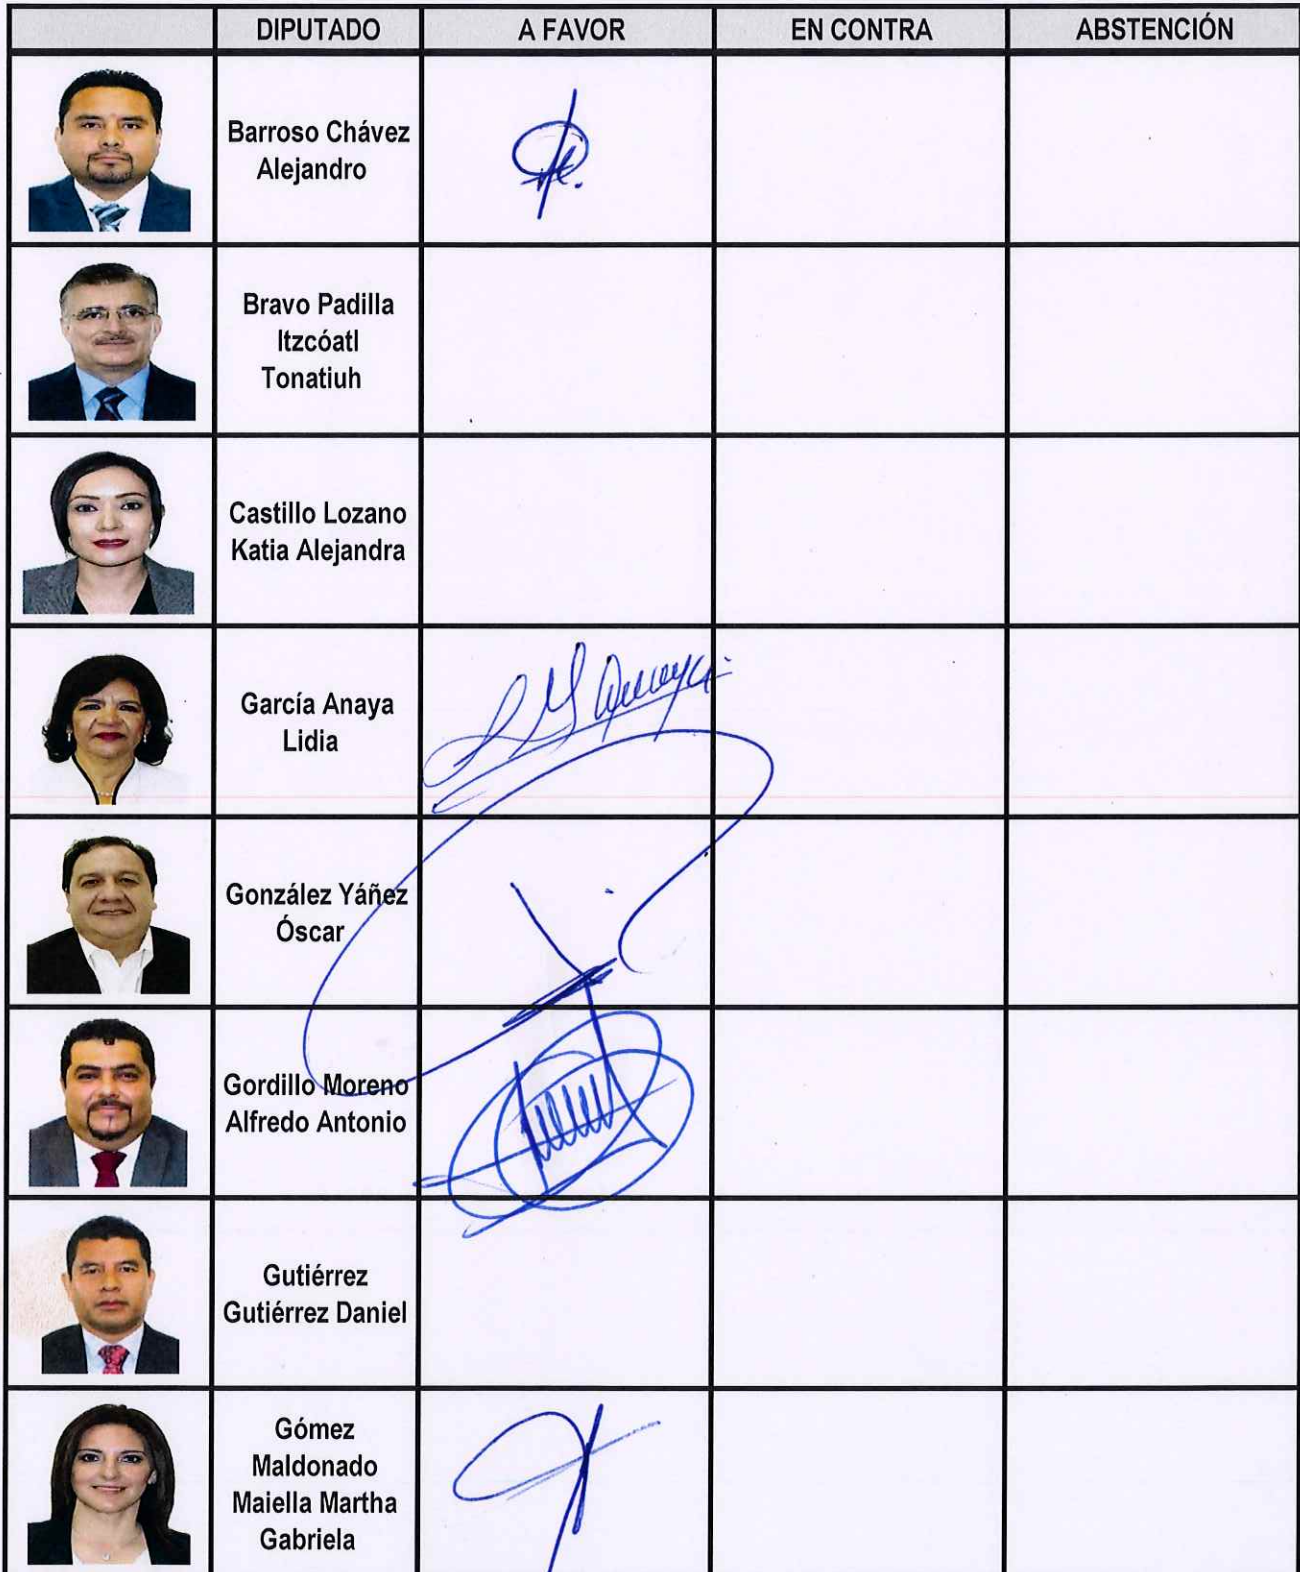 DIPUTADO A FAVOR EN CONTRA ABSTENCIÓN
Barroso Chávez
Alejandro
Bravo Padilla
Itzcóatl
Tonatiuh
Castillo Lozano
Katia Alejandra
García Anaya
Lidia
González Yáñez
Óscar
Gordillo Moreno
Alfredo Antonio
Gutiérrez
Gutiérrez Daniel
Gómez
Maldonado
Maiella Martha
Gabriela